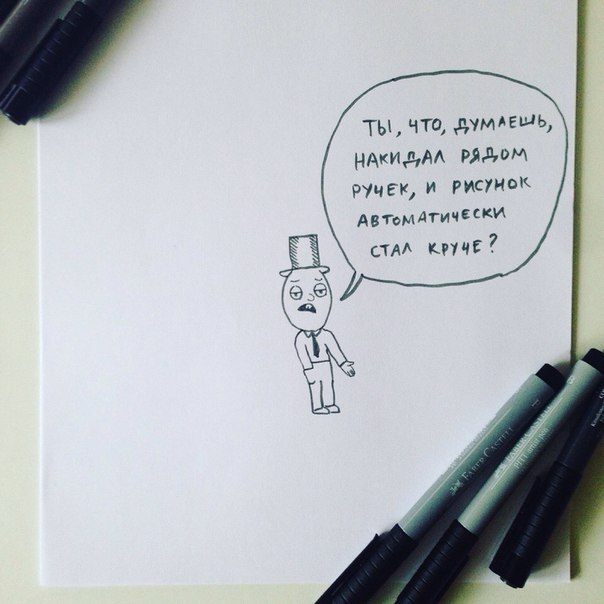 ТЫ, ЧТО, ДУМАЕШЬ,
НАКИДАЛ РЯДОМ
РУЧЕК, И РИСУНОК
АВТОМАТИЧЕСКИ
СТАЛ КРУЧЕ?
FABER-CASTELL
FABER-CASTELL